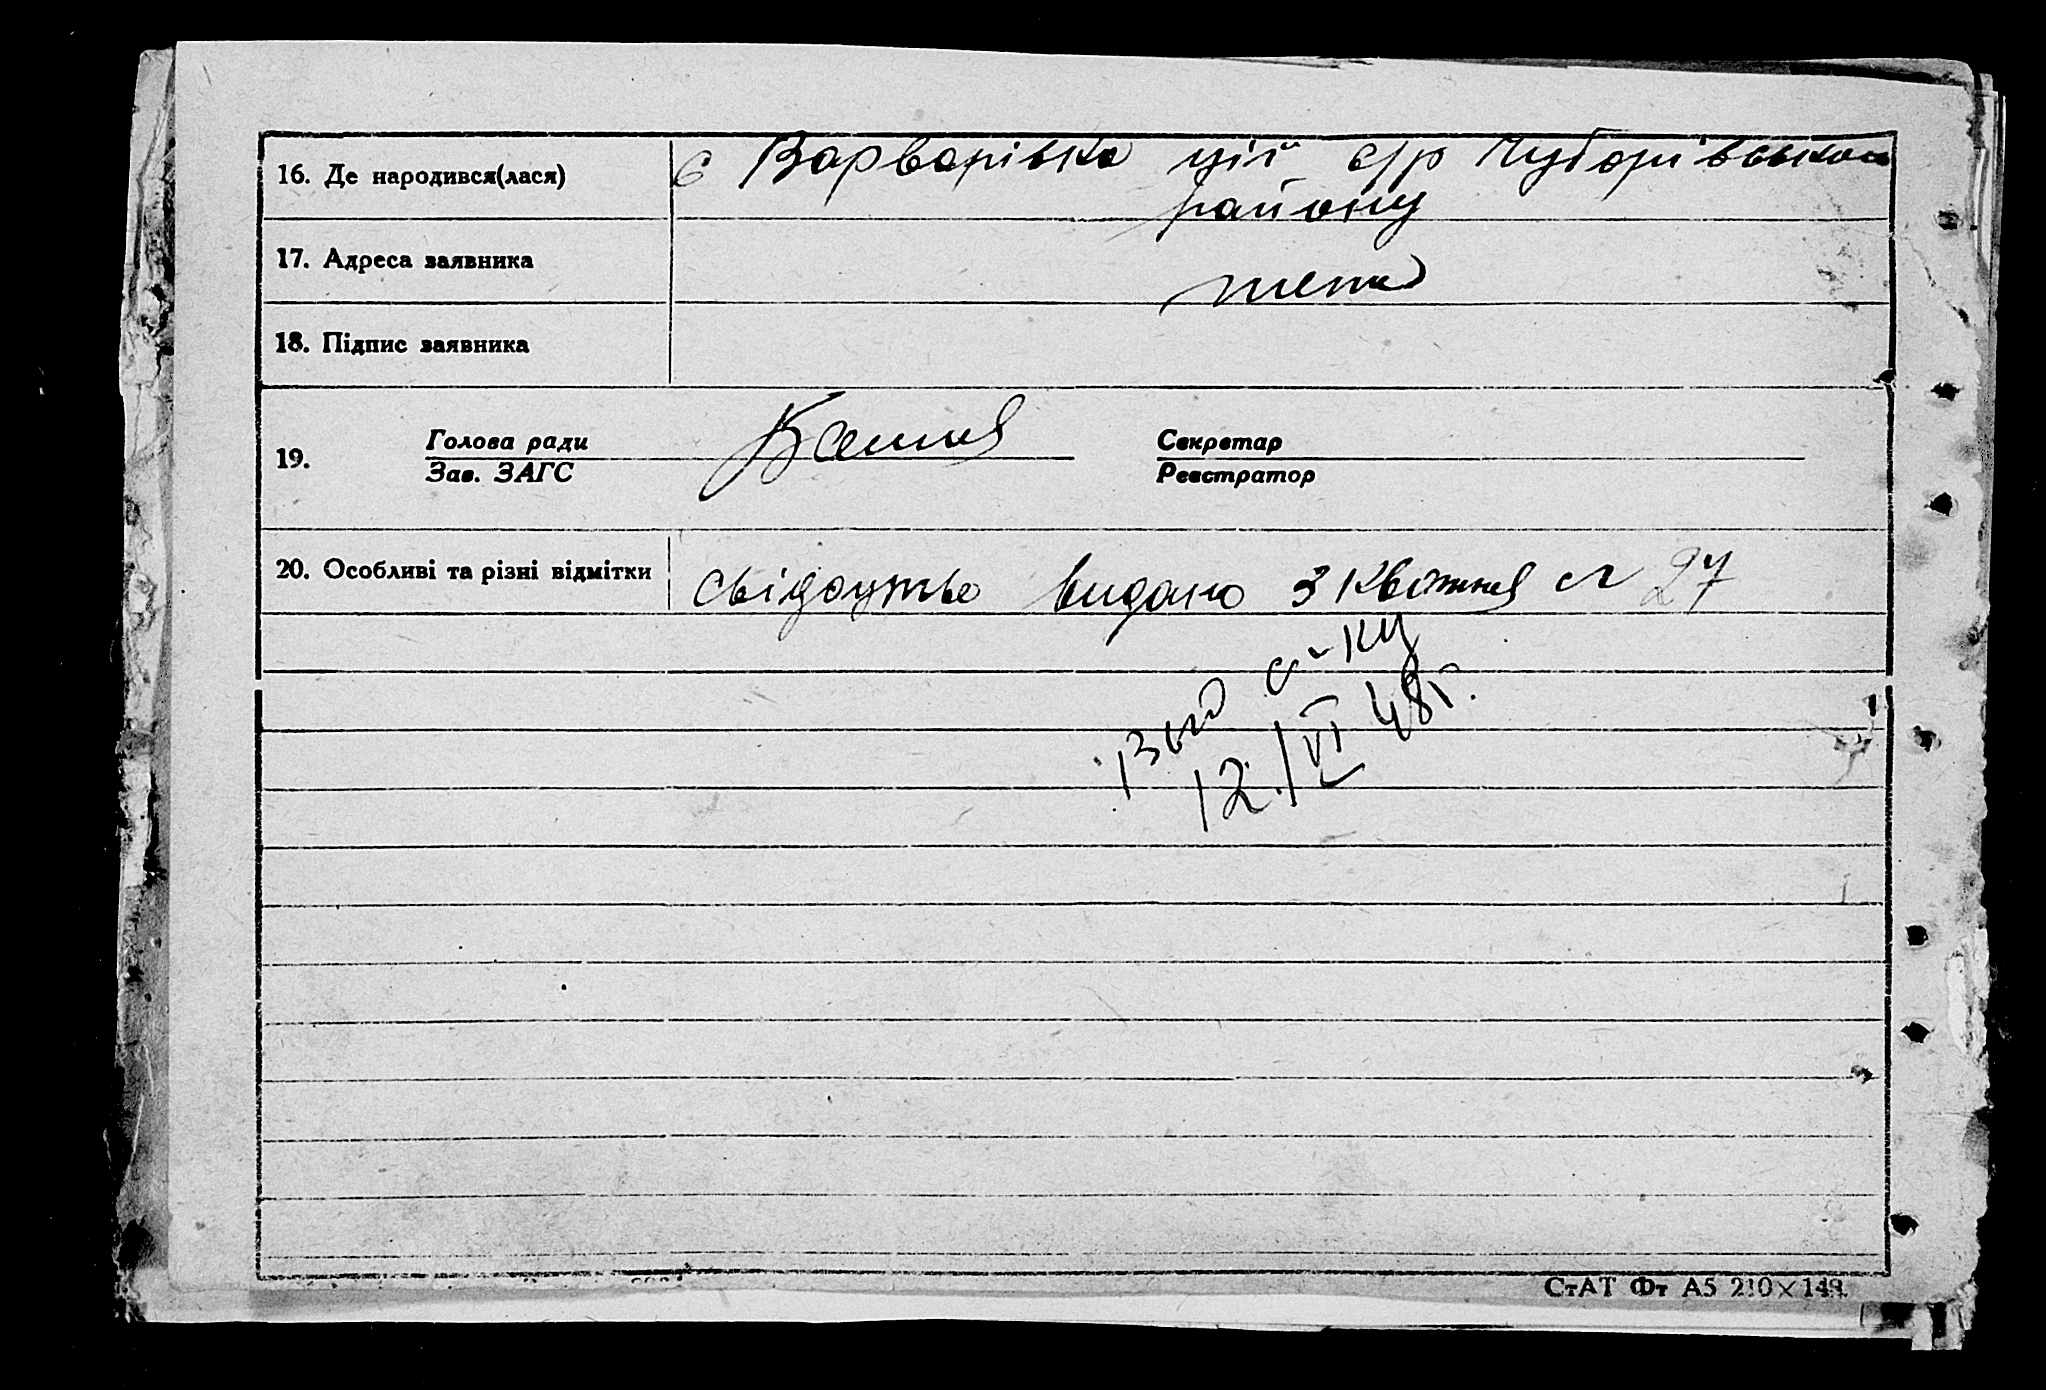 16. Де народився(лася) с Варварівка цієї с/р Чубарівського
району
17. Адреса заявника
18. Підпис заявника
19. Голова ради
Зав. ЗАГС
Секретар
Реєстратор
20. Особливі та різні відмітки свідоцтво видано 3 квітня 27
12/VI 48г.
СтАТ Фт А5 210×148.